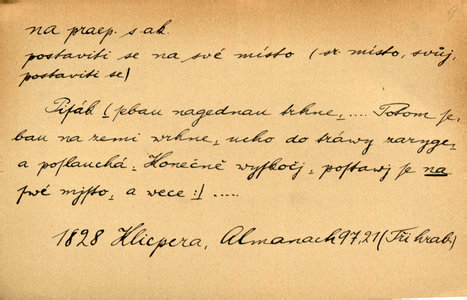 na praep. s ak.
postaviti se na své místo (sr. místo, svůj,
postaviti se)
Pifák (sebau nagednau trhne, .... Potom se-
bau na zemi wrhne, ucho do tráwy zaryge,
a poslauchá. Konečně wyskočj, postawj se na
swé mjsto, a wece :) .....
1828 Klicpera, Almanach 97,21 (Tři hrab.)